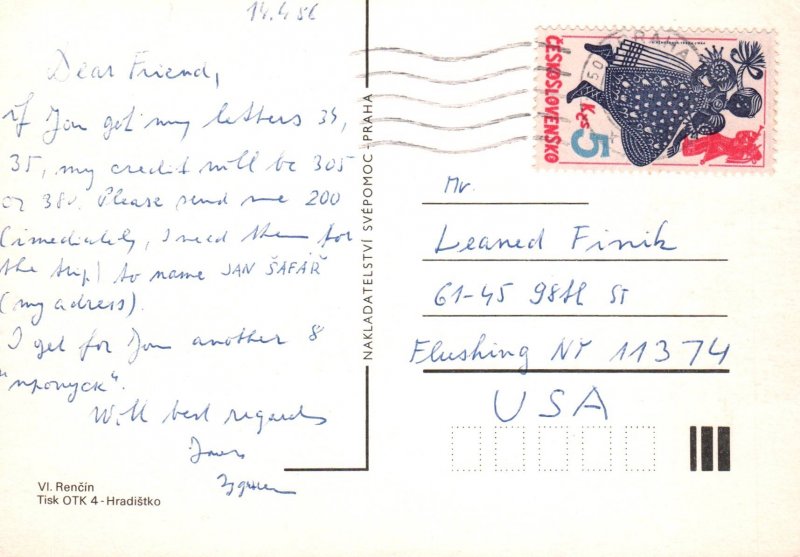 14.4.86
Dear Friend,
If You get my letters 34,
35, my credit will be 305
or 380. Please send me 200
(imediately, I need them for
the trip) to name JAN ŠAFÁŘ
(my adress).
I get for You another 8
"пропуск".
With best regards
Yours
Vl. Renčín
Tisk OTK 4 - Hradištko
NAKLADATELSTVÍ SVÉPOMOC - PRAHA
ČESKOSLOVENSKO
5 Kčs
PRAHA
Mr.
Leaned Finik
61-45 98th ST
Flushing NY 11374
USA